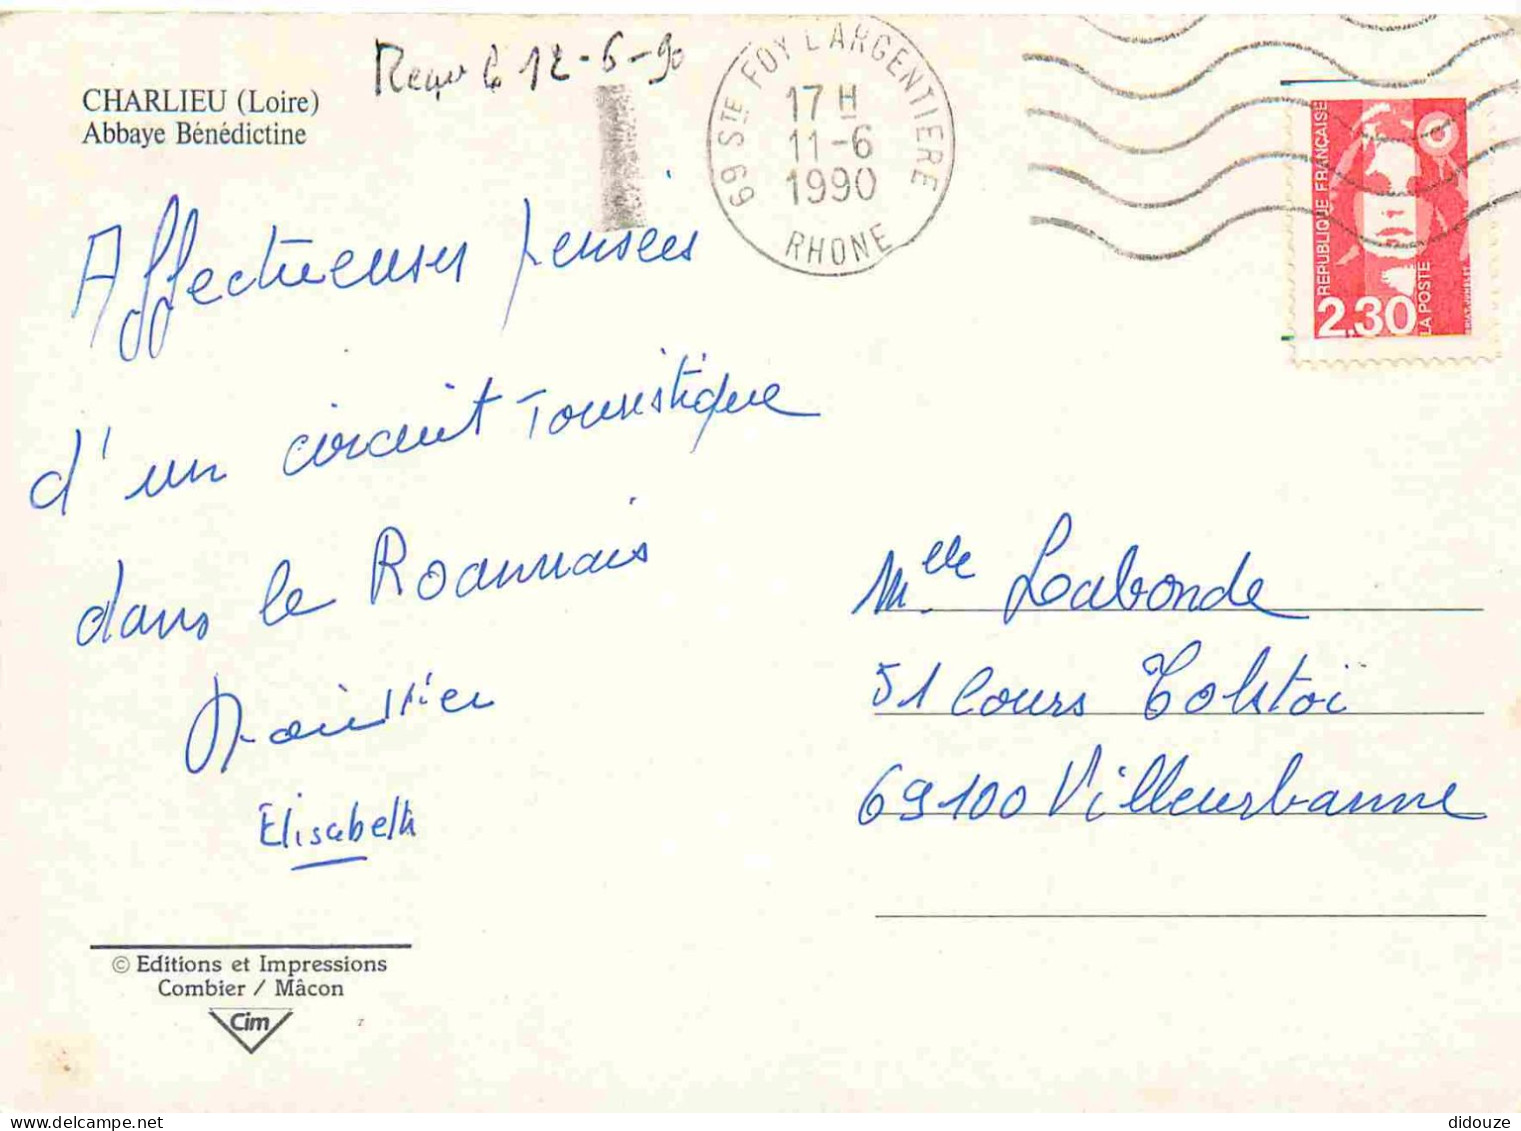 CHARLIEU (Loire)
Abbaye Bénédictine
Reçu le 12-6-90
69 STE FOY L'ARGENTIERE
17 H
11-6
1990
RHONE
REPUBLIQUE FRANÇAISE
2,30
LA POSTE
Affectueuses pensées
d'un circuit Touristique
dans le Roannais
Elisabeth
Melle Labonde
51 Cours Tolstoï
69100 Villeurbanne
© Editions et Impressions
Combier / Mâcon
Cim
didouze